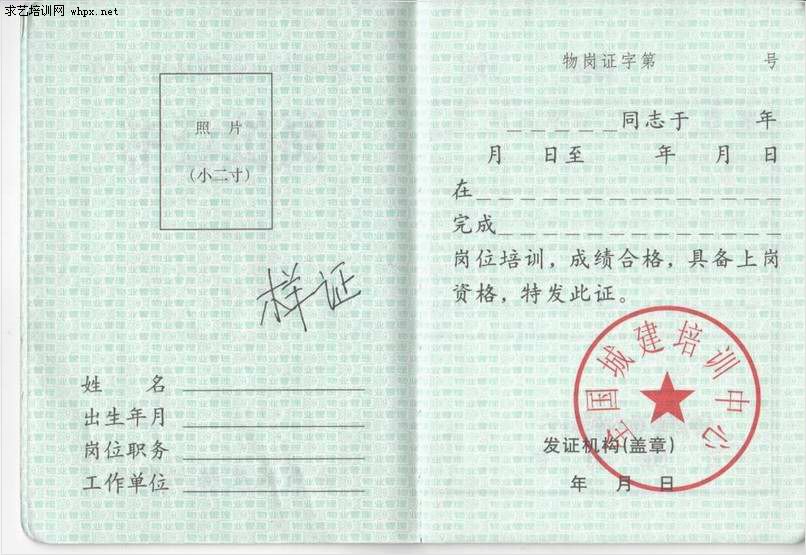 求艺培训网 whpx.net
照 片
(小二寸)
样证
姓 名
出生年月
岗位职务
工作单位
物岗证字第 号
_____同志于 年
月 日至 年 月 日
在
完成
岗位培训，成绩合格，具备上岗
资格，特发此证。
全国城建培训中心
发证机构(盖章)
年 月 日